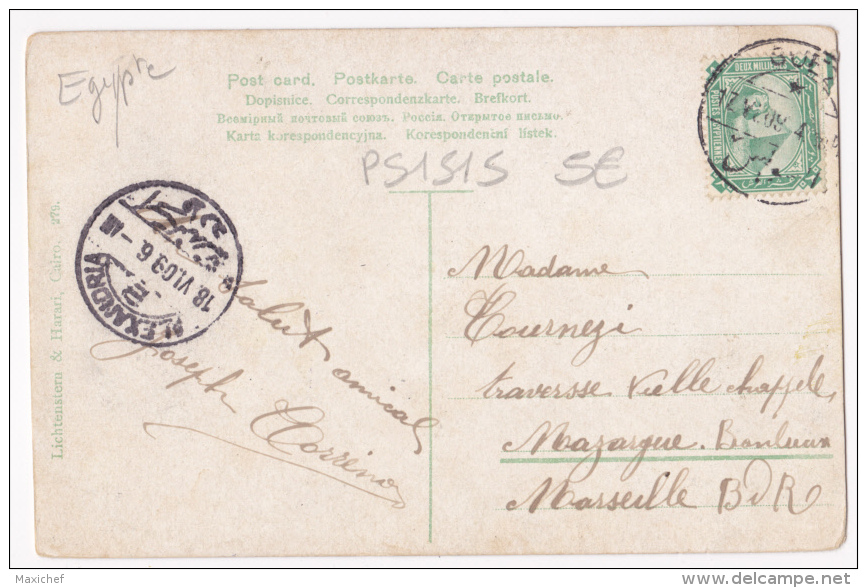 Egypte
Post card. Postkarte. Carte postale.
Dopisnice. Correspondenzkarte. Brefkort.
Всемірный почтовый союзъ. Россія. Открытое письмо.
Karta korespondencyjna. Korespondenční listek.
PS1515 5€
SUEZ
DEUX MILLIEMES
POSTES EGYPTIENNES
ALEXANDRIA
18 VI.09 6 - AM
Lichtenstern & Harari, Cairo. 279.
Salut amical
Joseph
Madame
Tournezi
traversse vielle chappelle
Mazargue
Marseille BdR
Maxichef
delcampe.net